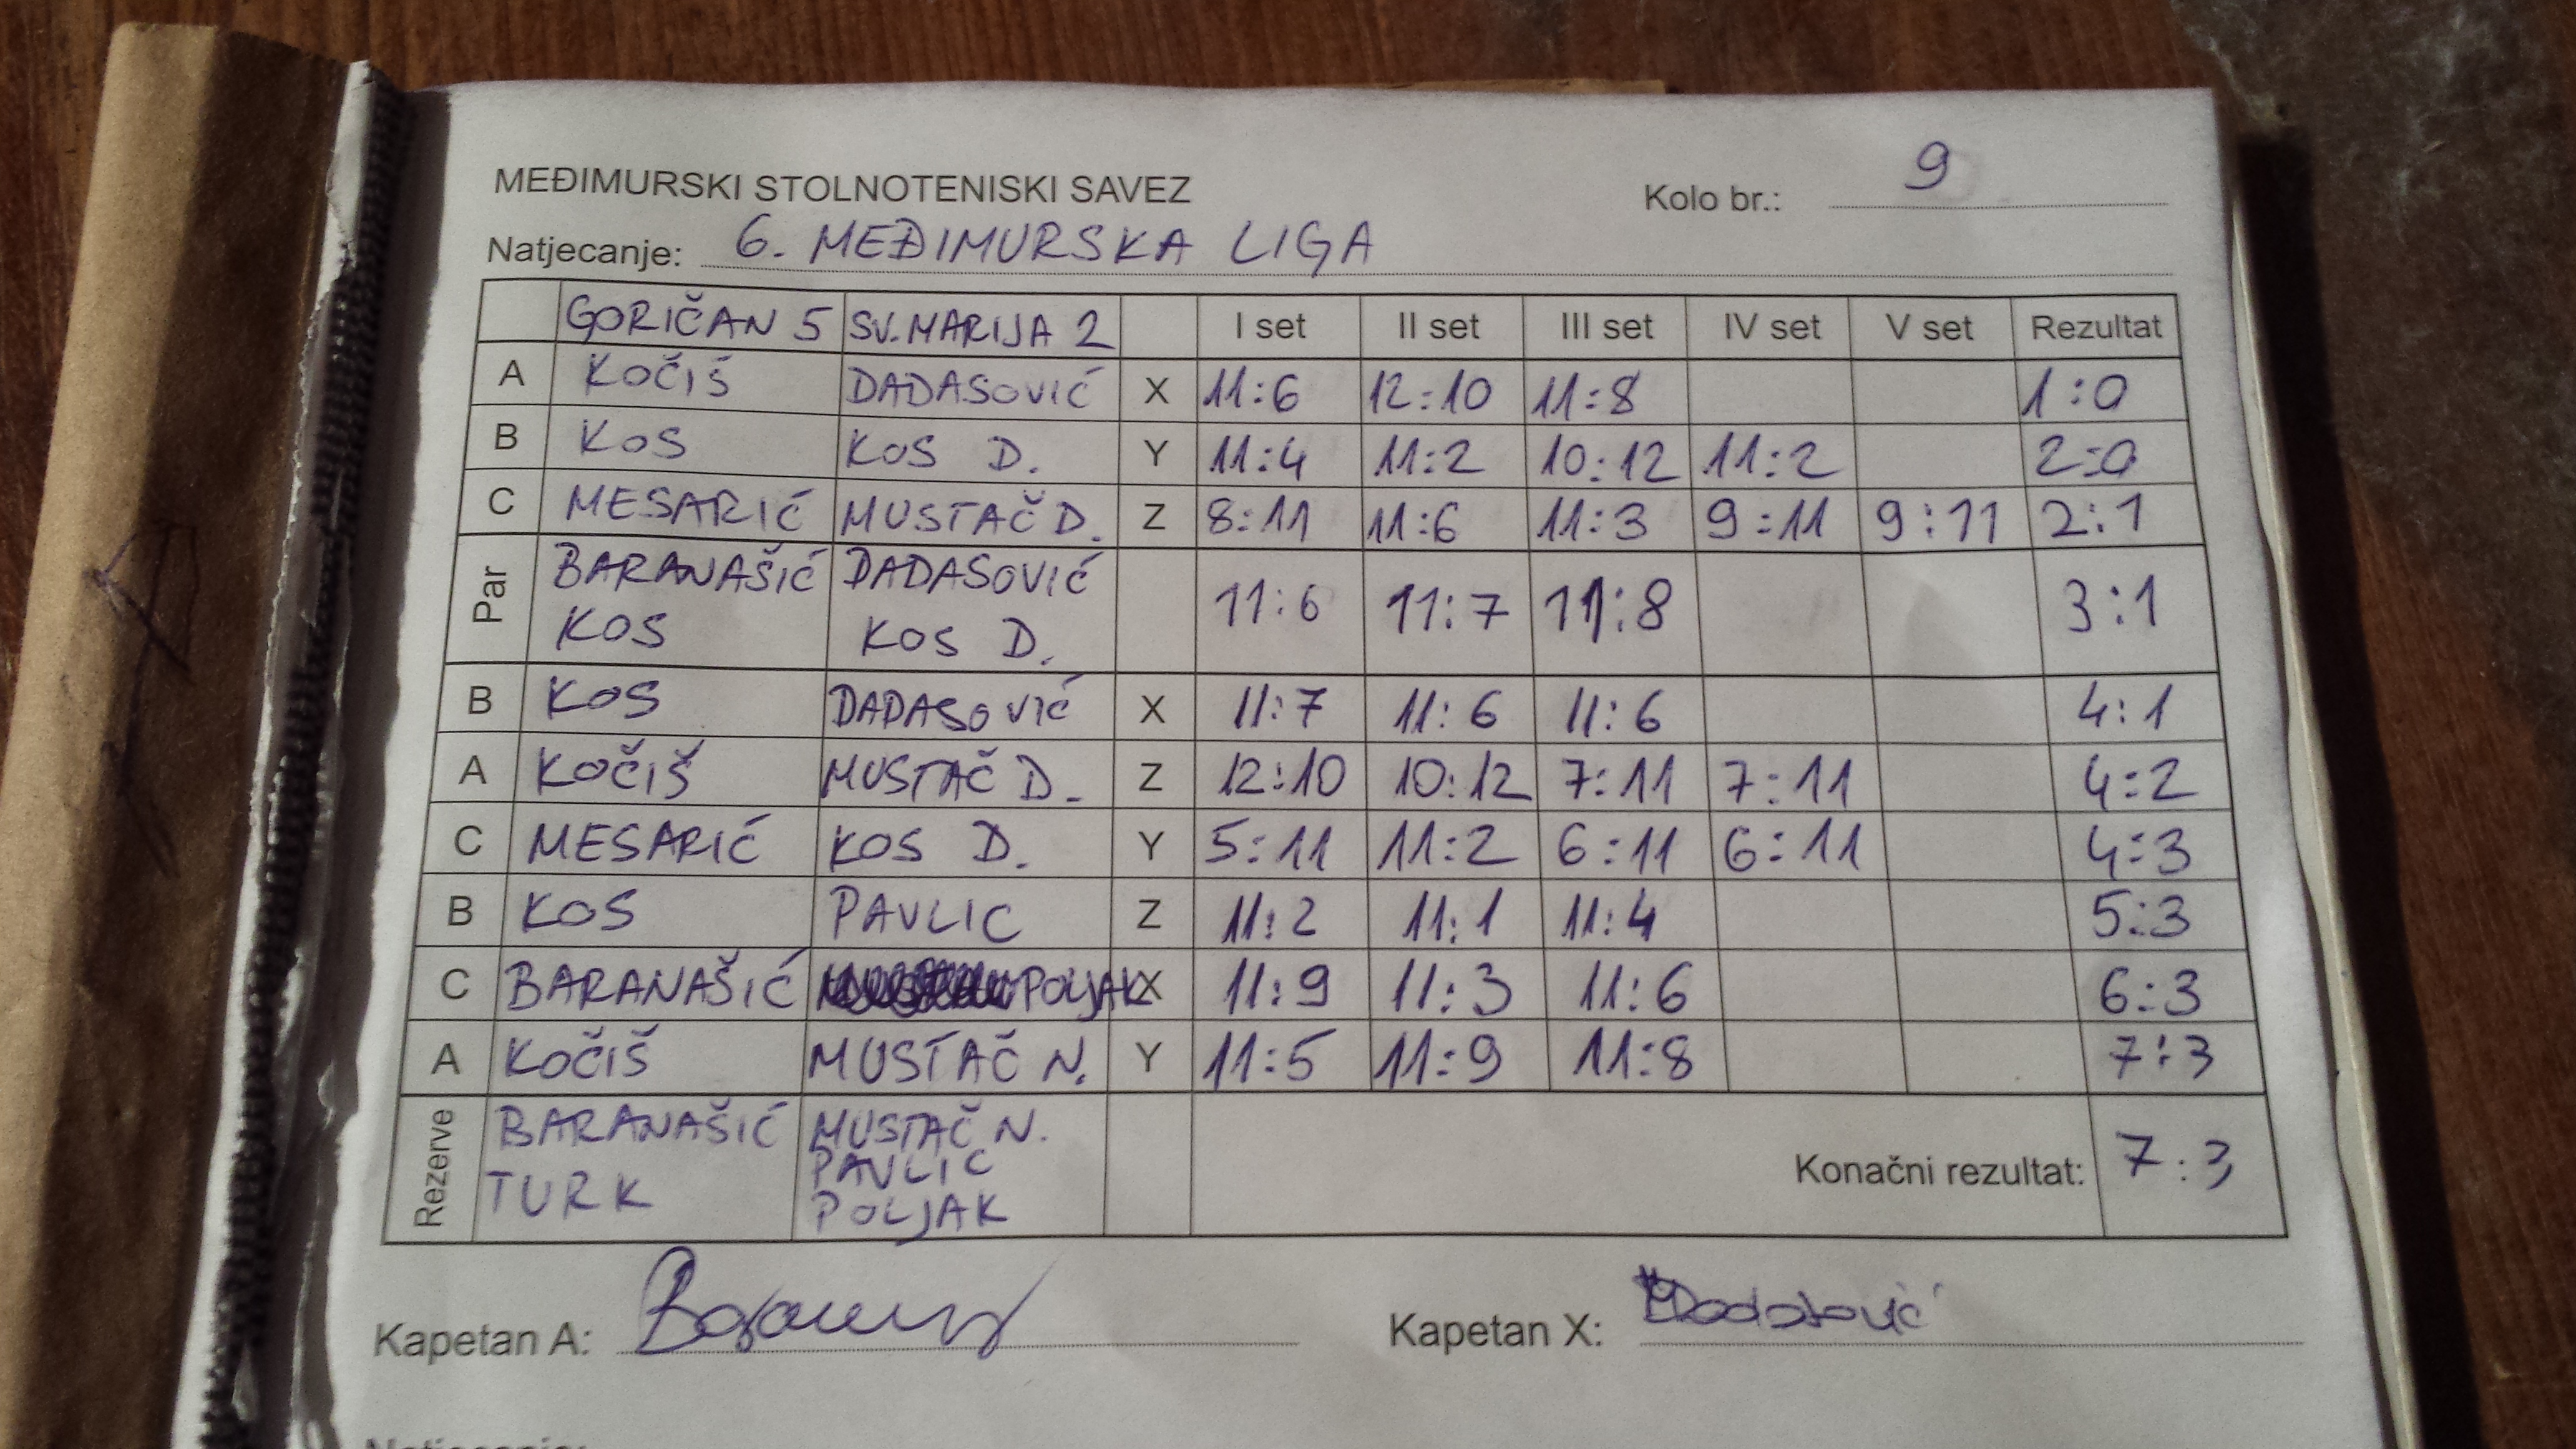 MEĐIMURSKI STOLNOTENISKI SAVEZ Kolo br.: 9
Natjecanje: 6. MEĐIMURSKA LIGA
GORIČAN 5 SV. MARIJA 2 I set II set III set IV set V set Rezultat
A KOČIŠ DADASOVIĆ X 11:6 12:10 11:8 1:0
B KOS KOS D. Y 11:4 11:2 10:12 11:2 2:0
C MESARIĆ MUSTAČ D. Z 8:11 11:6 11:3 9:11 9:11 2:1
Par BARANAŠIĆ DADASOVIĆ 11:6 11:7 11:8 3:1
KOS KOS D.
B KOS DADASOVIĆ X 11:7 11:6 11:6 4:1
A KOČIŠ MUSTAČ D. Z 12:10 10:12 7:11 7:11 4:2
C MESARIĆ KOS D. Y 5:11 11:2 6:11 6:11 4:3
B KOS PAVLIC Z 11:2 11:1 11:4 5:3
C BARANAŠIĆ POLJAK X 11:9 11:3 11:6 6:3
A KOČIŠ MUSTAČ N. Y 11:5 11:9 11:8 7:3
Rezerve BARANAŠIĆ MUSTAČ N. Konačni rezultat: 7:3
TURK PAVLIC
POLJAK
Kapetan A: Kapetan X: Dadasović